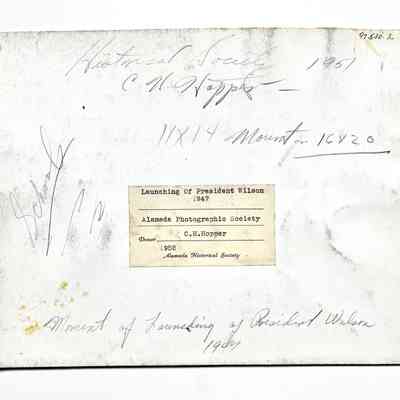 97.530.2
Historical Society 1951
C H Hopper
11X14 Mount on 16X20
School
Launching Of President Wilson
1947
Alameda Photographic Society
Donor C.H.Hopper
1952
Alameda Historical Society
Moment of Launching of President Wilson
1947